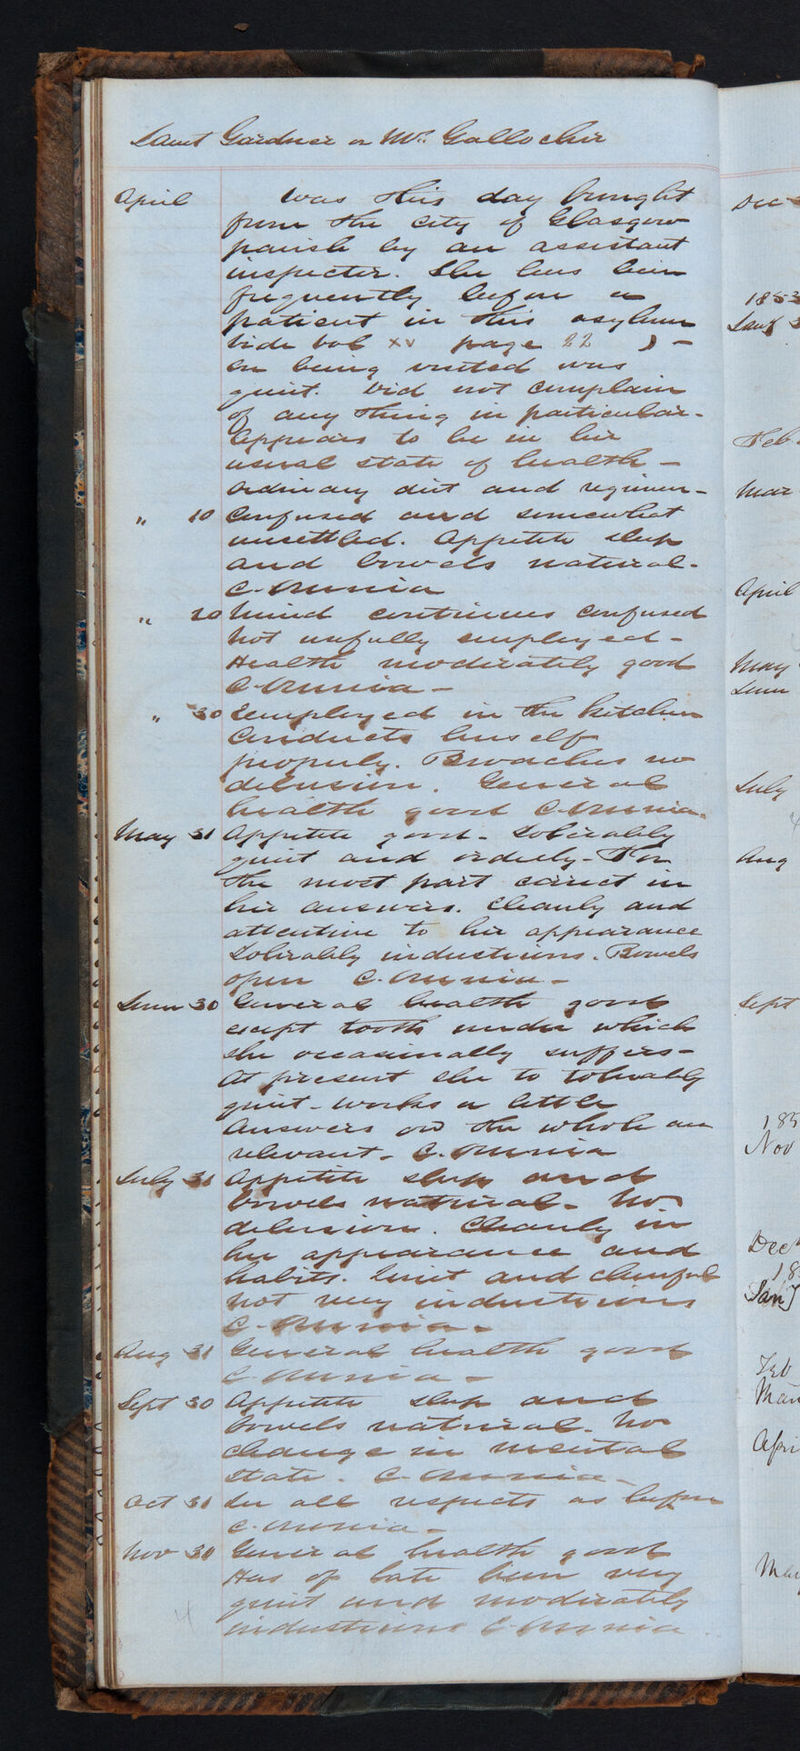 Janet Gardner or McGallocher
April Was this day brought
from the city of Glasgow
parish by an assistant
inspector. She has been
frequently before a
patient in this asylum
vide vol xv page 22 ) -
on being visited was
quiet. Did not complain
of any thing in particular-
Appears to be in her
usual state of health -
ordinary diet and regimen-
" 10 Confused and somewhat
unsettled. Appetite sleep
and bowels natural-
C. omnia
" 20 Mind continues confused
Not usefully employed-
Health moderately good
C omnia -
" 30 Employed in the kitchen
Conducts herself
properly. Broaches no
delusion. General
health good C. omnia.
May 31 Appetite good- Tolerably
quiet and orderly- For
the most part correct in
her answers. Cleanly and
attentive to her appearance
Tolerably industrious. Bowels
open C. omnia-
June 30 General health good
except tooth under which
she occasionally suffers-
At present she to tolerably
quiet- works a little
Answers on the whole are
relevant- C. omnia
July 31 Appetite sleep and
bowels natural- No
delusion. Cleanly in
her appearance and
habits. Quiet and cheerful
not very industrious
C- omnia-
Aug 31 General health good
C. omnia -
Sept 30 Appetite sleep and
bowels natural- No
change in mental
state. C. omnia-
Oct 31 In all respects as before
C. omnia-
Nov 30 General health good
Has of late been very
quiet and moderately
industrious C omnia
Dec
1853
Jany 3
Feb
Mar
April
May
June
July
Aug
Sept
185
Nov
Dec
18
Jany
Feb
Mar
Apri
May